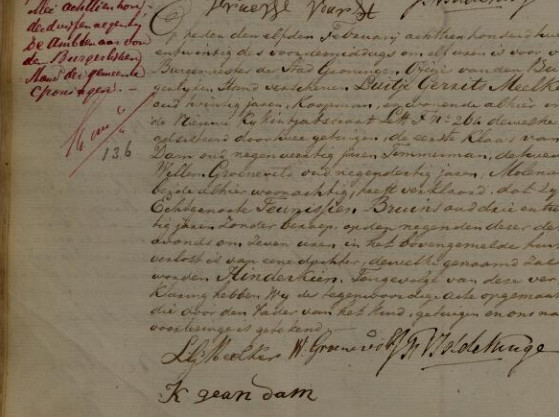 Mei achttien hon-
derd vijf en negentig
De Ambtenaar van
den Burgerlijken
Stand der gemeente
Groningen. -
136
Op heden den elfden Februarij achttien honderd
en twintig des voordemiddags om elf uren is voor
Burgemeester der Stad Groningen, Officier van den Bur
gerlijken Stand verschenen Luitje Gerrits Meelke
oud twintig jaren, Koopman, en wonende alhier
de Nieuwe Kijkintjatstraat Lett. F. No. 264 dewelke
adsisteerd door twee getuigen, de eerste Klaas van
Dam oud negen veertig jaren Timmerman, de twee
Willem Groeneveld oud negen dertig jaren, Molena
beide alhier woonachtig, heeft verklaard, dat Zy
Echtgenoote Teunissien Bruins oud drie en twin
tig jaren zonder beroep, op den negenden dezer de
avonds om zeven uren in het bovengemelde huis
verlost is van eene dochter, dewelke genaamd zal
worden Hinderkien. Tengevolge van deze ver
klaring hebben Wij de tegenwoordige acte opgemaa
die door den Vader van het kind, getuigen en ons na
voorlezinge is getekend -
W. Groeneveld
K g van dam